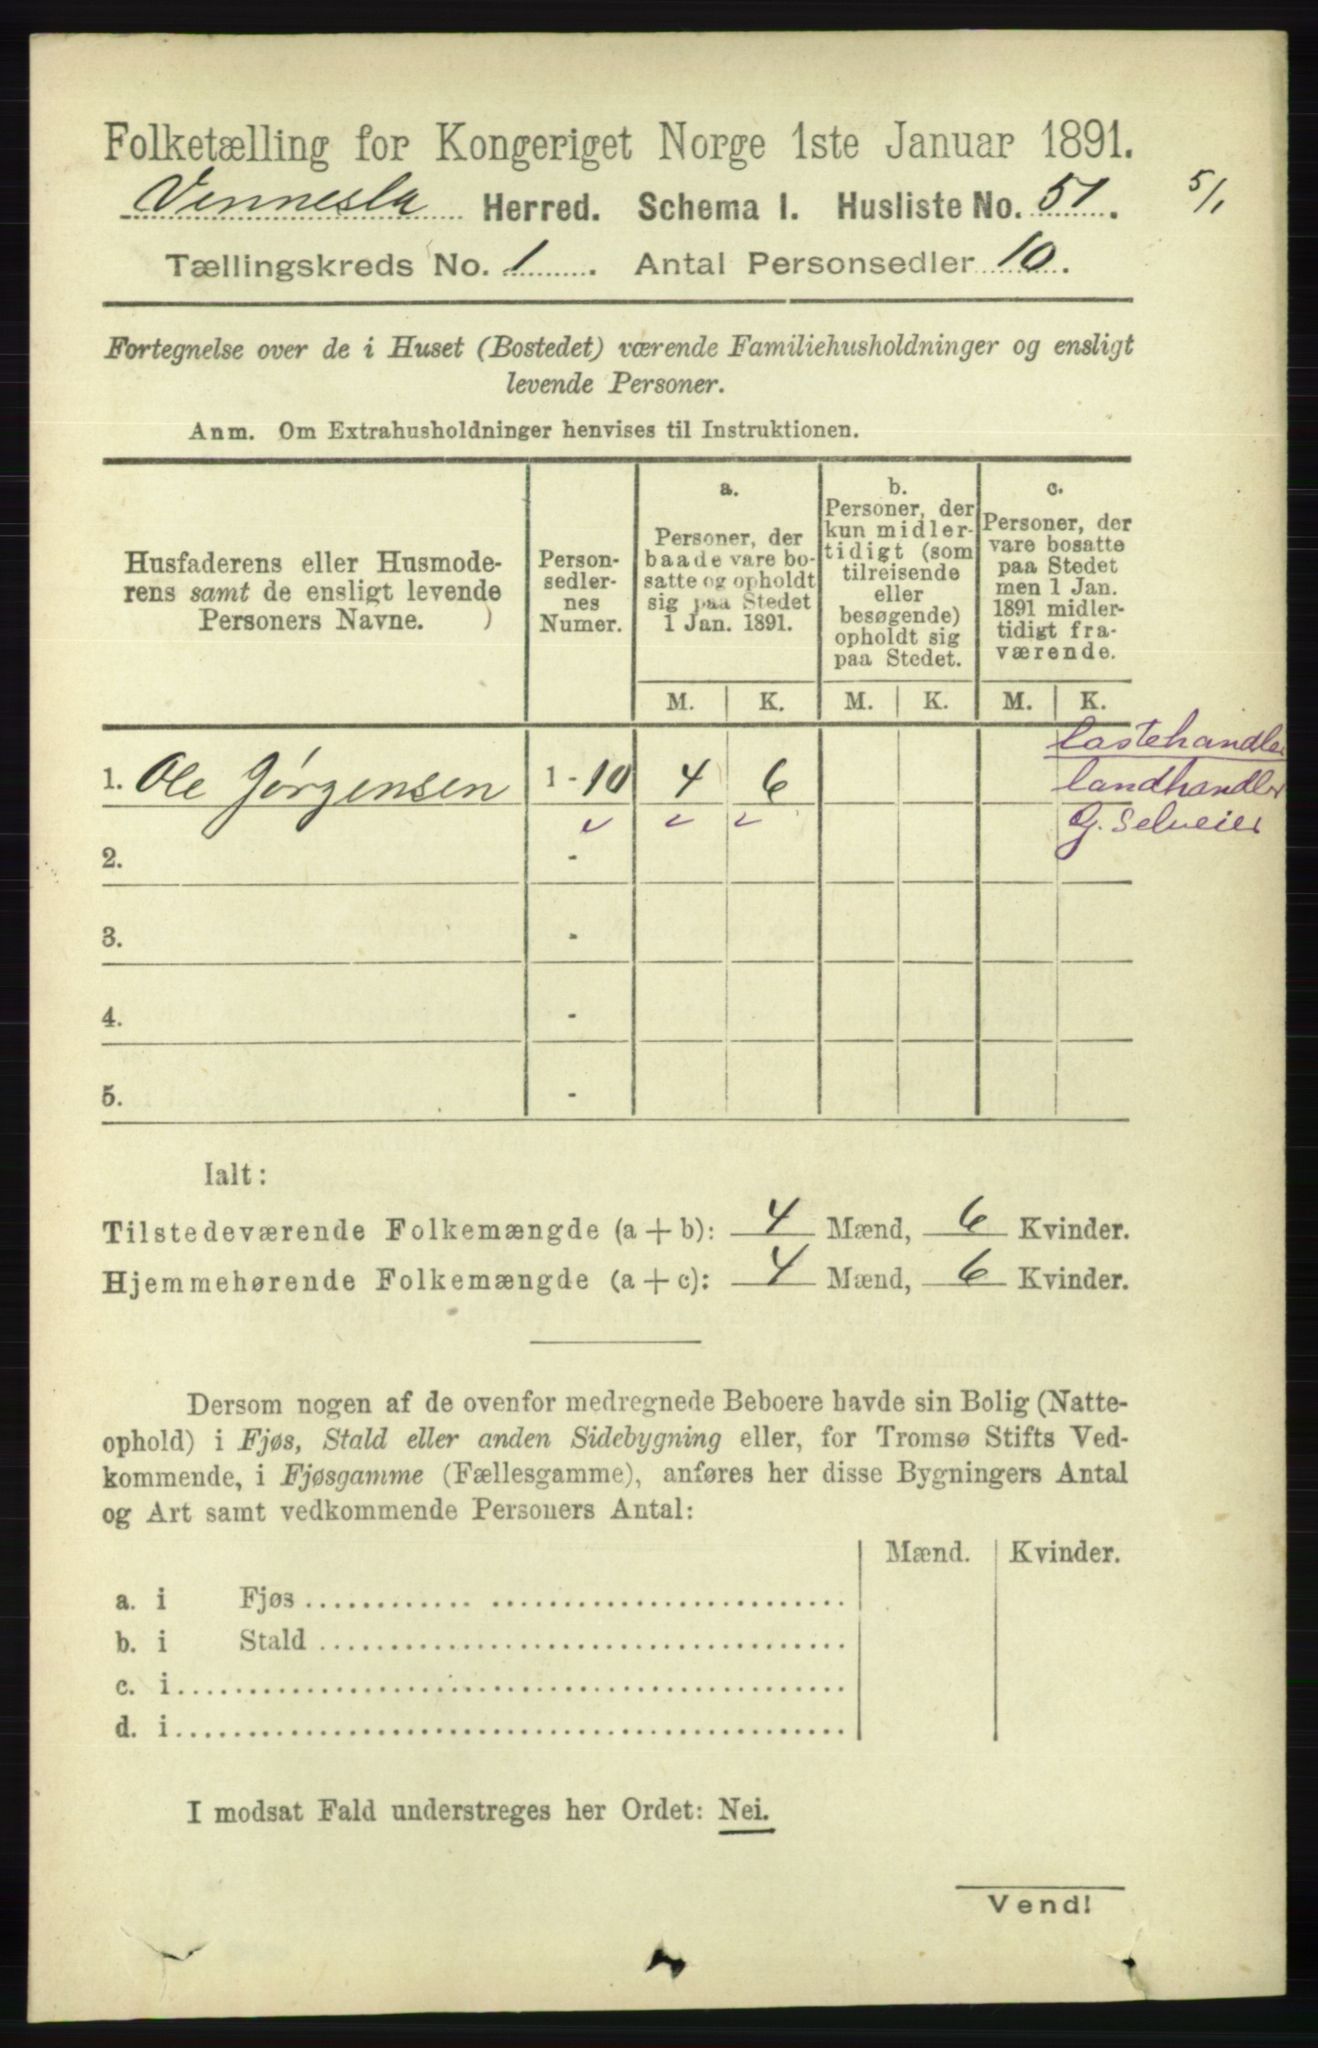 Folketælling for Kongeriget Norge 1ste Januar 1891.
Vennesla Herred. Schema I. Husliste No. 51.
5/1
Tællingskreds No. 1. Antal Personsedler 10.
Fortegnelse over de i Huset (Bostedet) værende Familiehusholdninger og ensligt
levende Personer.
Anm. Om Extrahusholdninger henvises til Instruktionen.
Husfaderens eller Husmode-
rens samt de ensligt levende
Personers Navne.
Person-
sedler-
nes
Numer.
a.
Personer, der
baade vare bo-
satte og opholdt
sig paa Stedet
1 Jan. 1891.
b.
Personer, der
kun midler-
tidigt (som
tilreisende
eller
besøgende)
opholdt sig
paa Stedet.
c.
Personer, der
vare bosatte
paa Stedet
men 1 Jan.
1891 midler-
tidigt fra-
værende.
M. K. M. K. M. K.
1. Ole Jørgensen 1 - 10 4 6
Lastehandler
landhandler
G. Selveier
2. -
3. -
4. -
5. -
Ialt:
Tilstedeværende Folkemængde (a + b): 4 Mænd, 6 Kvinder.
Hjemmehørende Folkemængde (a + c): 4 Mænd, 6 Kvinder.
Dersom nogen af de ovenfor medregnede Beboere havde sin Bolig (Natte-
ophold) i Fjøs, Stald eller anden Sidebygning eller, for Tromsø Stifts Ved-
kommende, i Fjøsgamme (Fællesgamme), anføres her disse Bygningers Antal
og Art samt vedkommende Personers Antal:
Mænd. Kvinder.
a. i Fjøs
b. i Stald
c. i
d. i
I modsat Fald understreges her Ordet: Nei.
Vend!